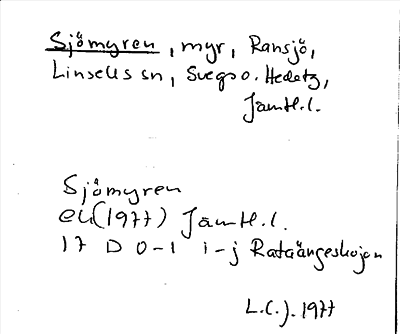 Sjömyren, myr, Ransjö,
Linsells sn, Svegs o. Hedetg,
Jämtl.l.
Sjömyren
ek(1977) Jämtl.l.
17 D 0-1 i-j Rataängeskojan
L.C.J. 1977